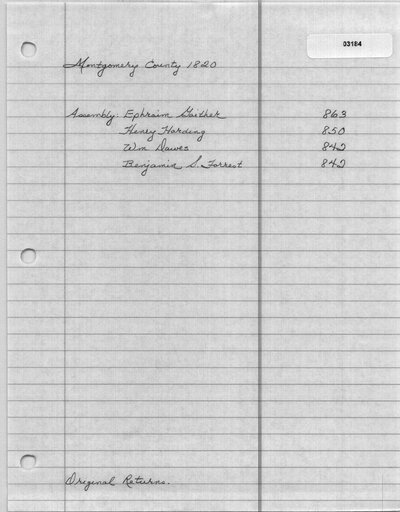 03184
Montgomery County 1820
Assembly: Ephraim Gaither 863
Henry Harding 850
Wm Dawes 842
Benjamin S. Forrest 842
Original Returns.